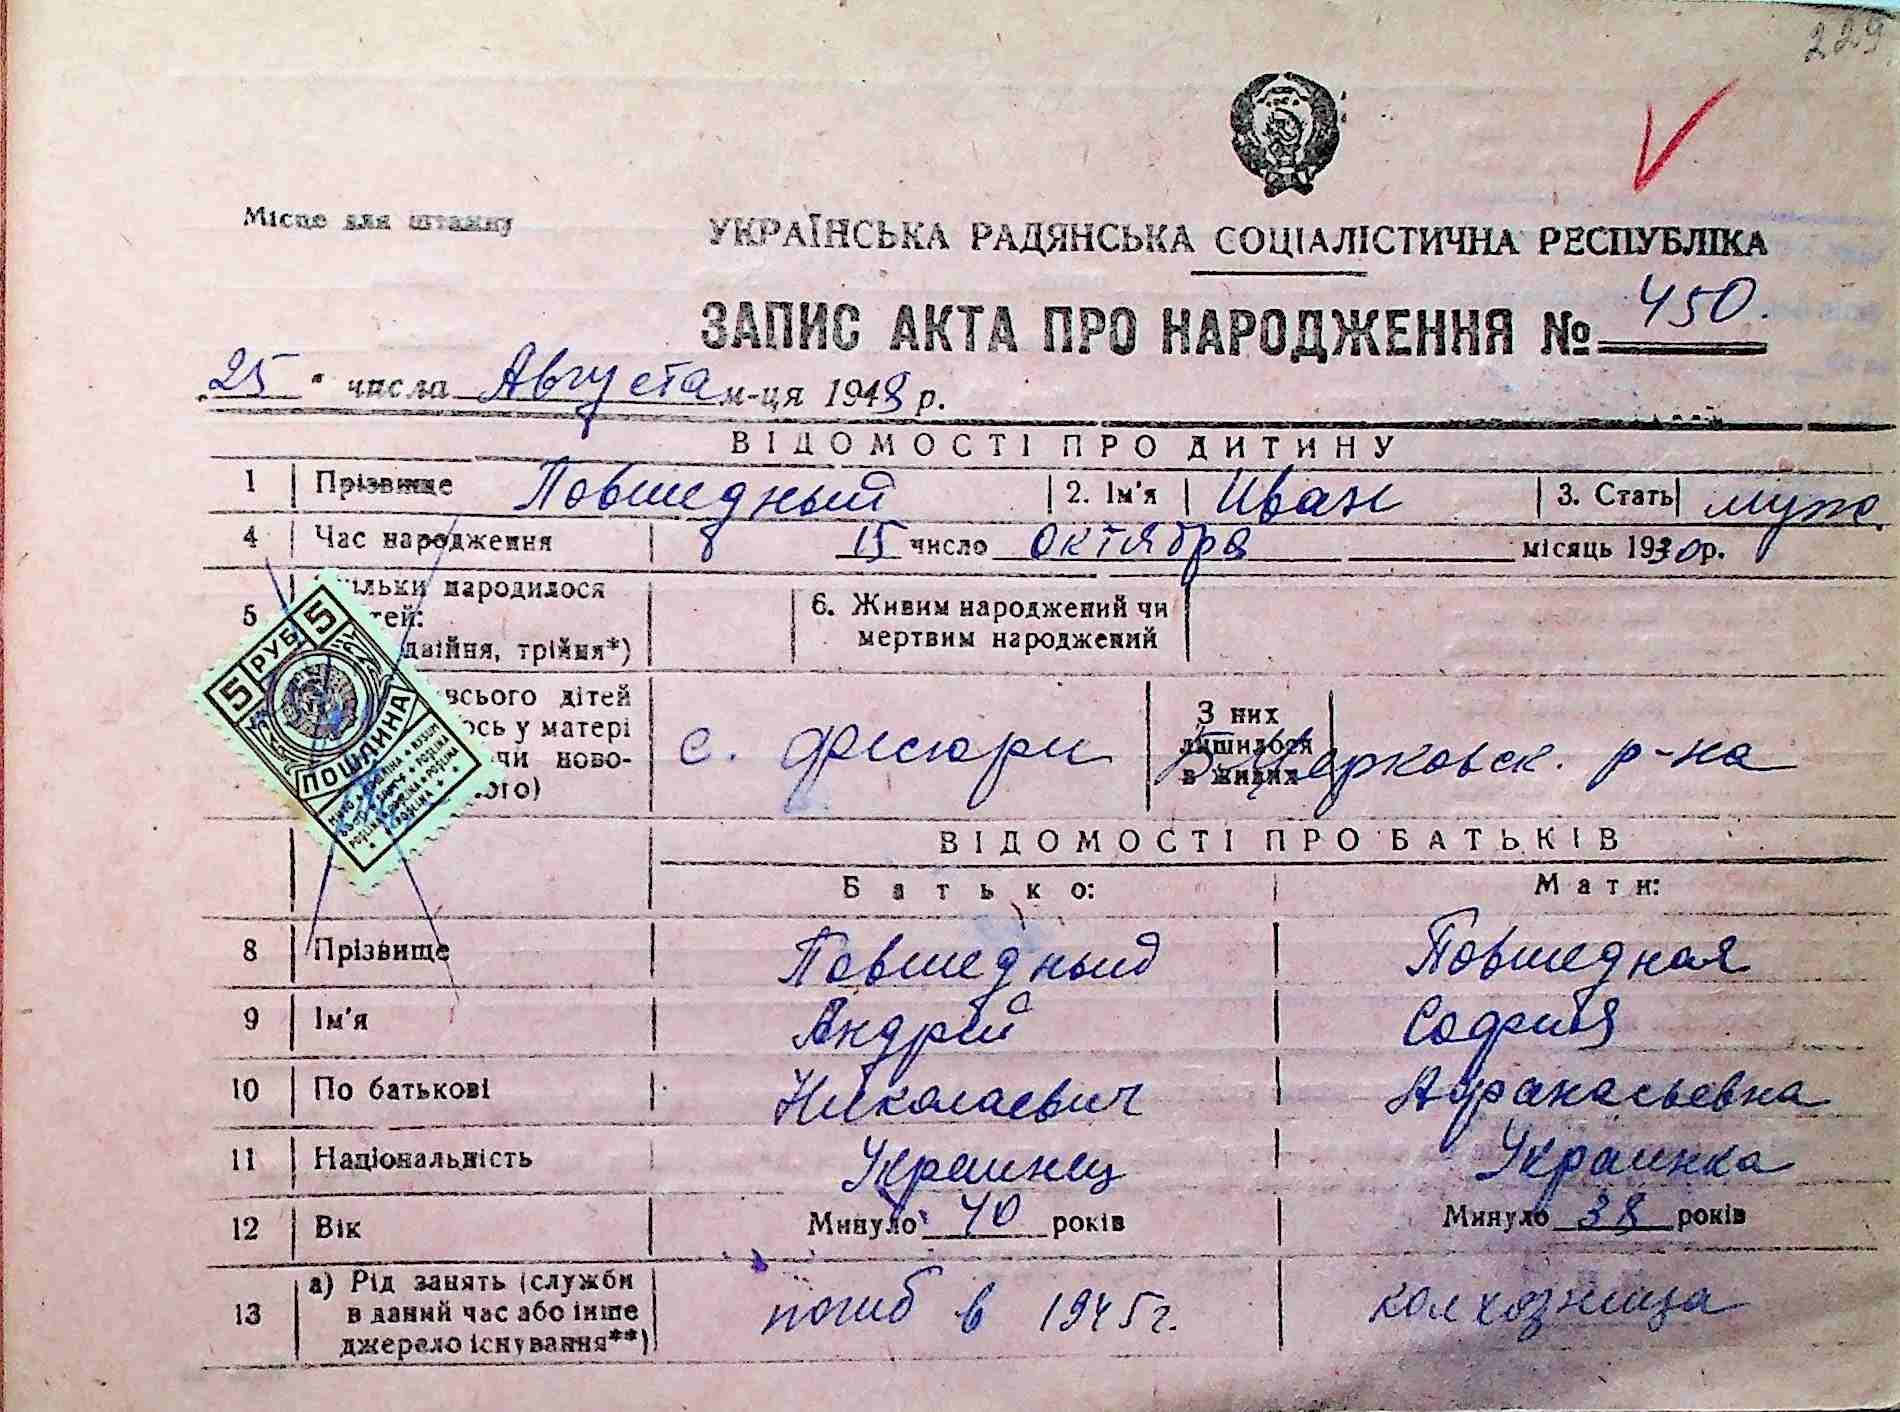 229
Місце для штампу
УКРАЇНСЬКА РАДЯНСЬКА СОЦІАЛІСТИЧНА РЕСПУБЛІКА
ЗАПИС АКТА ПРО НАРОДЖЕННЯ № 450.
25 " числа Августа м-ця 1948 р.
ВІДОМОСТІ ПРО ДИТИНУ
1 Прізвище Повшедный 2. Ім'я Иван 3. Стать муж.
4 Час народження 15 число октября місяць 1930 р.
5 ільки народилося тей: двійня, трійня*) 6. Живим народжений чи мертвим народжений
всього дітей
ось у матері
чи ново-
ого)
с. Фесюры
З них лишилося в живих
Б-Церковск. р-на
5 РУБ 5
ПОШЛИНА
ВІДОМОСТІ ПРО БАТЬКІВ
Батько: Мати:
8 Прізвище Повшедный Повшедная
9 Ім'я Андрей София
10 По батькові Николаевич Афанасьевна
11 Національність Украинец Украинка
12 Вік Минуло 40 років Минуло 38 років
13 а) Рід занять (служби
в даний час або інше
джерело існування**)
погиб в 1945 г. колхозница